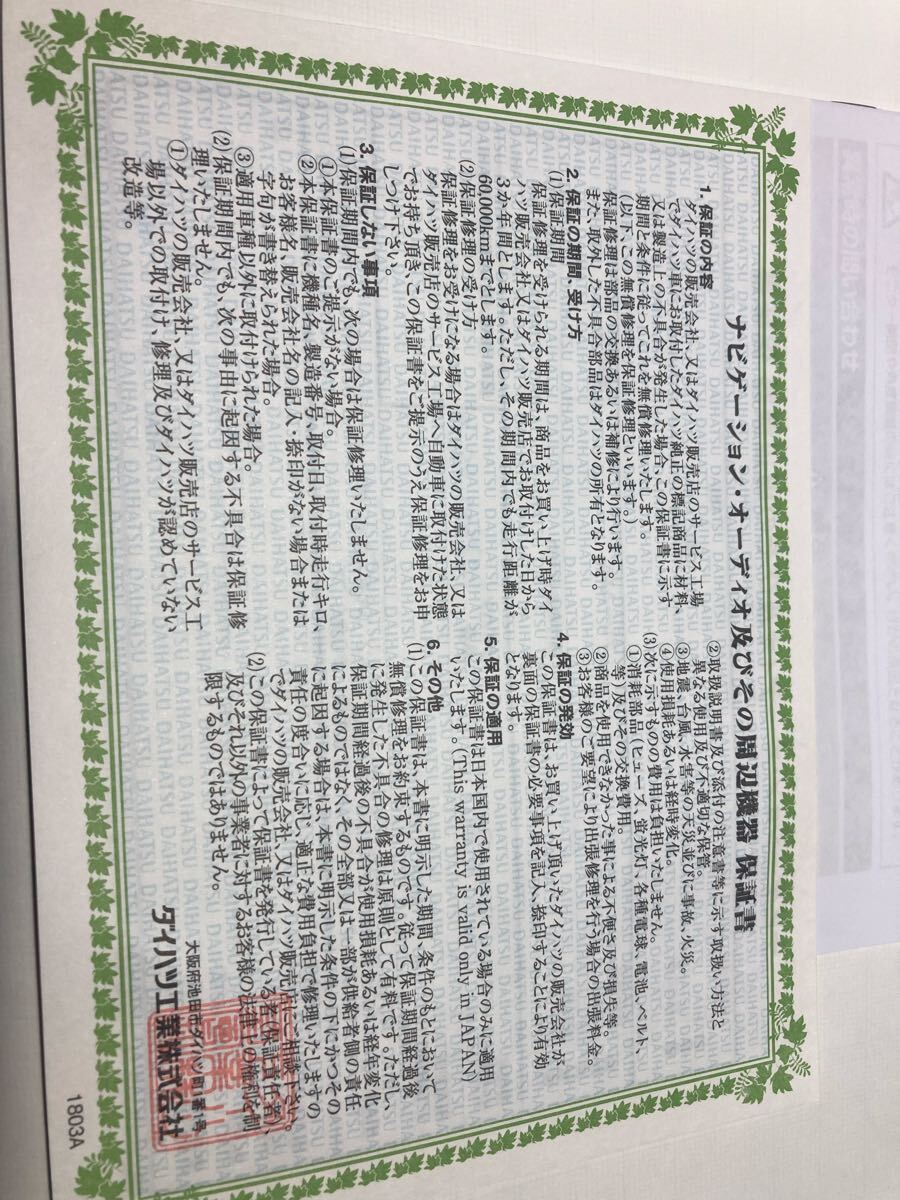 ナビゲーション・オーディオ及びその周辺機器 保証書
1. 保証の内容
ダイハツの販売会社、又はダイハツ販売店のサービス工場
でダイハツ車にお取付したダイハツ純正の標記商品に材料、
又は製造上の不具合が発生した場合、この保証書に示す
期間と条件に従ってこれを無償修理いたします。
(以下、この無償修理を保証修理といいます。)
保証修理は部品の交換あるいは補修により行います。
また、取外した不具合部品はダイハツの所有となります。
2. 保証の期間、受け方
(1)保証期間
保証修理を受けられる期間は、商品をお買い上げ時ダイ
ハツ販売会社又はダイハツ販売店でお取付けした日から
3か年間とします。ただし、その期間内でも走行距離が
60,000kmまでとします。
(2)保証修理の受け方
保証修理をお受けになる場合はダイハツの販売会社、又は
ダイハツ販売店のサービス工場へ自動車に取付けた状態
でお持ち頂き、この保証書をご提示のうえ保証修理をお申
しつけ下さい。
3. 保証しない事項
(1)保証期間内でも、次の場合は保証修理いたしません。
①本保証書のご提示がない場合。
②本保証書に機種名、製造番号、取付日、取付時走行キロ、
お客様名、販売会社名の記入・捺印がない場合または
字句が書き替えられた場合。
③適用車種以外に取付けられた場合。
(2)保証期間内でも、次の事由に起因する不具合は保証修
理いたしません。
①ダイハツの販売会社、又はダイハツ販売店のサービス工
場以外での取付け、修理及びダイハツが認めていない
改造等。
②取扱説明書及び添付の注意書等に示す取扱い方法と
異なる使用及び不適切な保管。
③地震、台風、水害等の天災並びに事故、火災。
④使用損耗あるいは経時変化。
(3)次に示すものの費用は負担いたしません。
①消耗部品(ヒューズ、蛍光灯、各種電球、電池、ベルト、
等)及びその交換費用。
②商品を使用できなかった事による不便さ及び損失等。
③お客様のご要望により出張修理を行う場合の出張料金。
4. 保証の発効
この保証書は、お買い上げ頂いたダイハツの販売会社が
裏面の保証書の必要事項を記入、捺印することにより有効
となります。
5. 保証の適用
この保証書は日本国内で使用されている場合のみに適用
いたします。(This warranty is valid only in JAPAN)
6. その他
(1)この保証書は、本書に明示した期間、条件のもとにおいて
無償修理をお約束するものです。従って保証期間経過後
に発生した不具合の修理は原則として有料です。ただし、
保証期間経過後の不具合が使用損耗あるいは経年変化
によるものではなく、その全部又は一部が供給者側の責任
に起因する場合は、本書に明示した条件の下にかつその
責任の度合いに応じ、適正な費用負担で修理いたしますの
でダイハツの販売会社、又はダイハツ販売店にご相談下さい。
(2)この保証書によって保証書を発行している者(保証責任者)、
及びそれ以外の事業者に対するお客様の法律上の権利を制
限するものではありません。
大阪府池田市ダイハツ町1番1号
ダイハツ工業株式会社
1803A